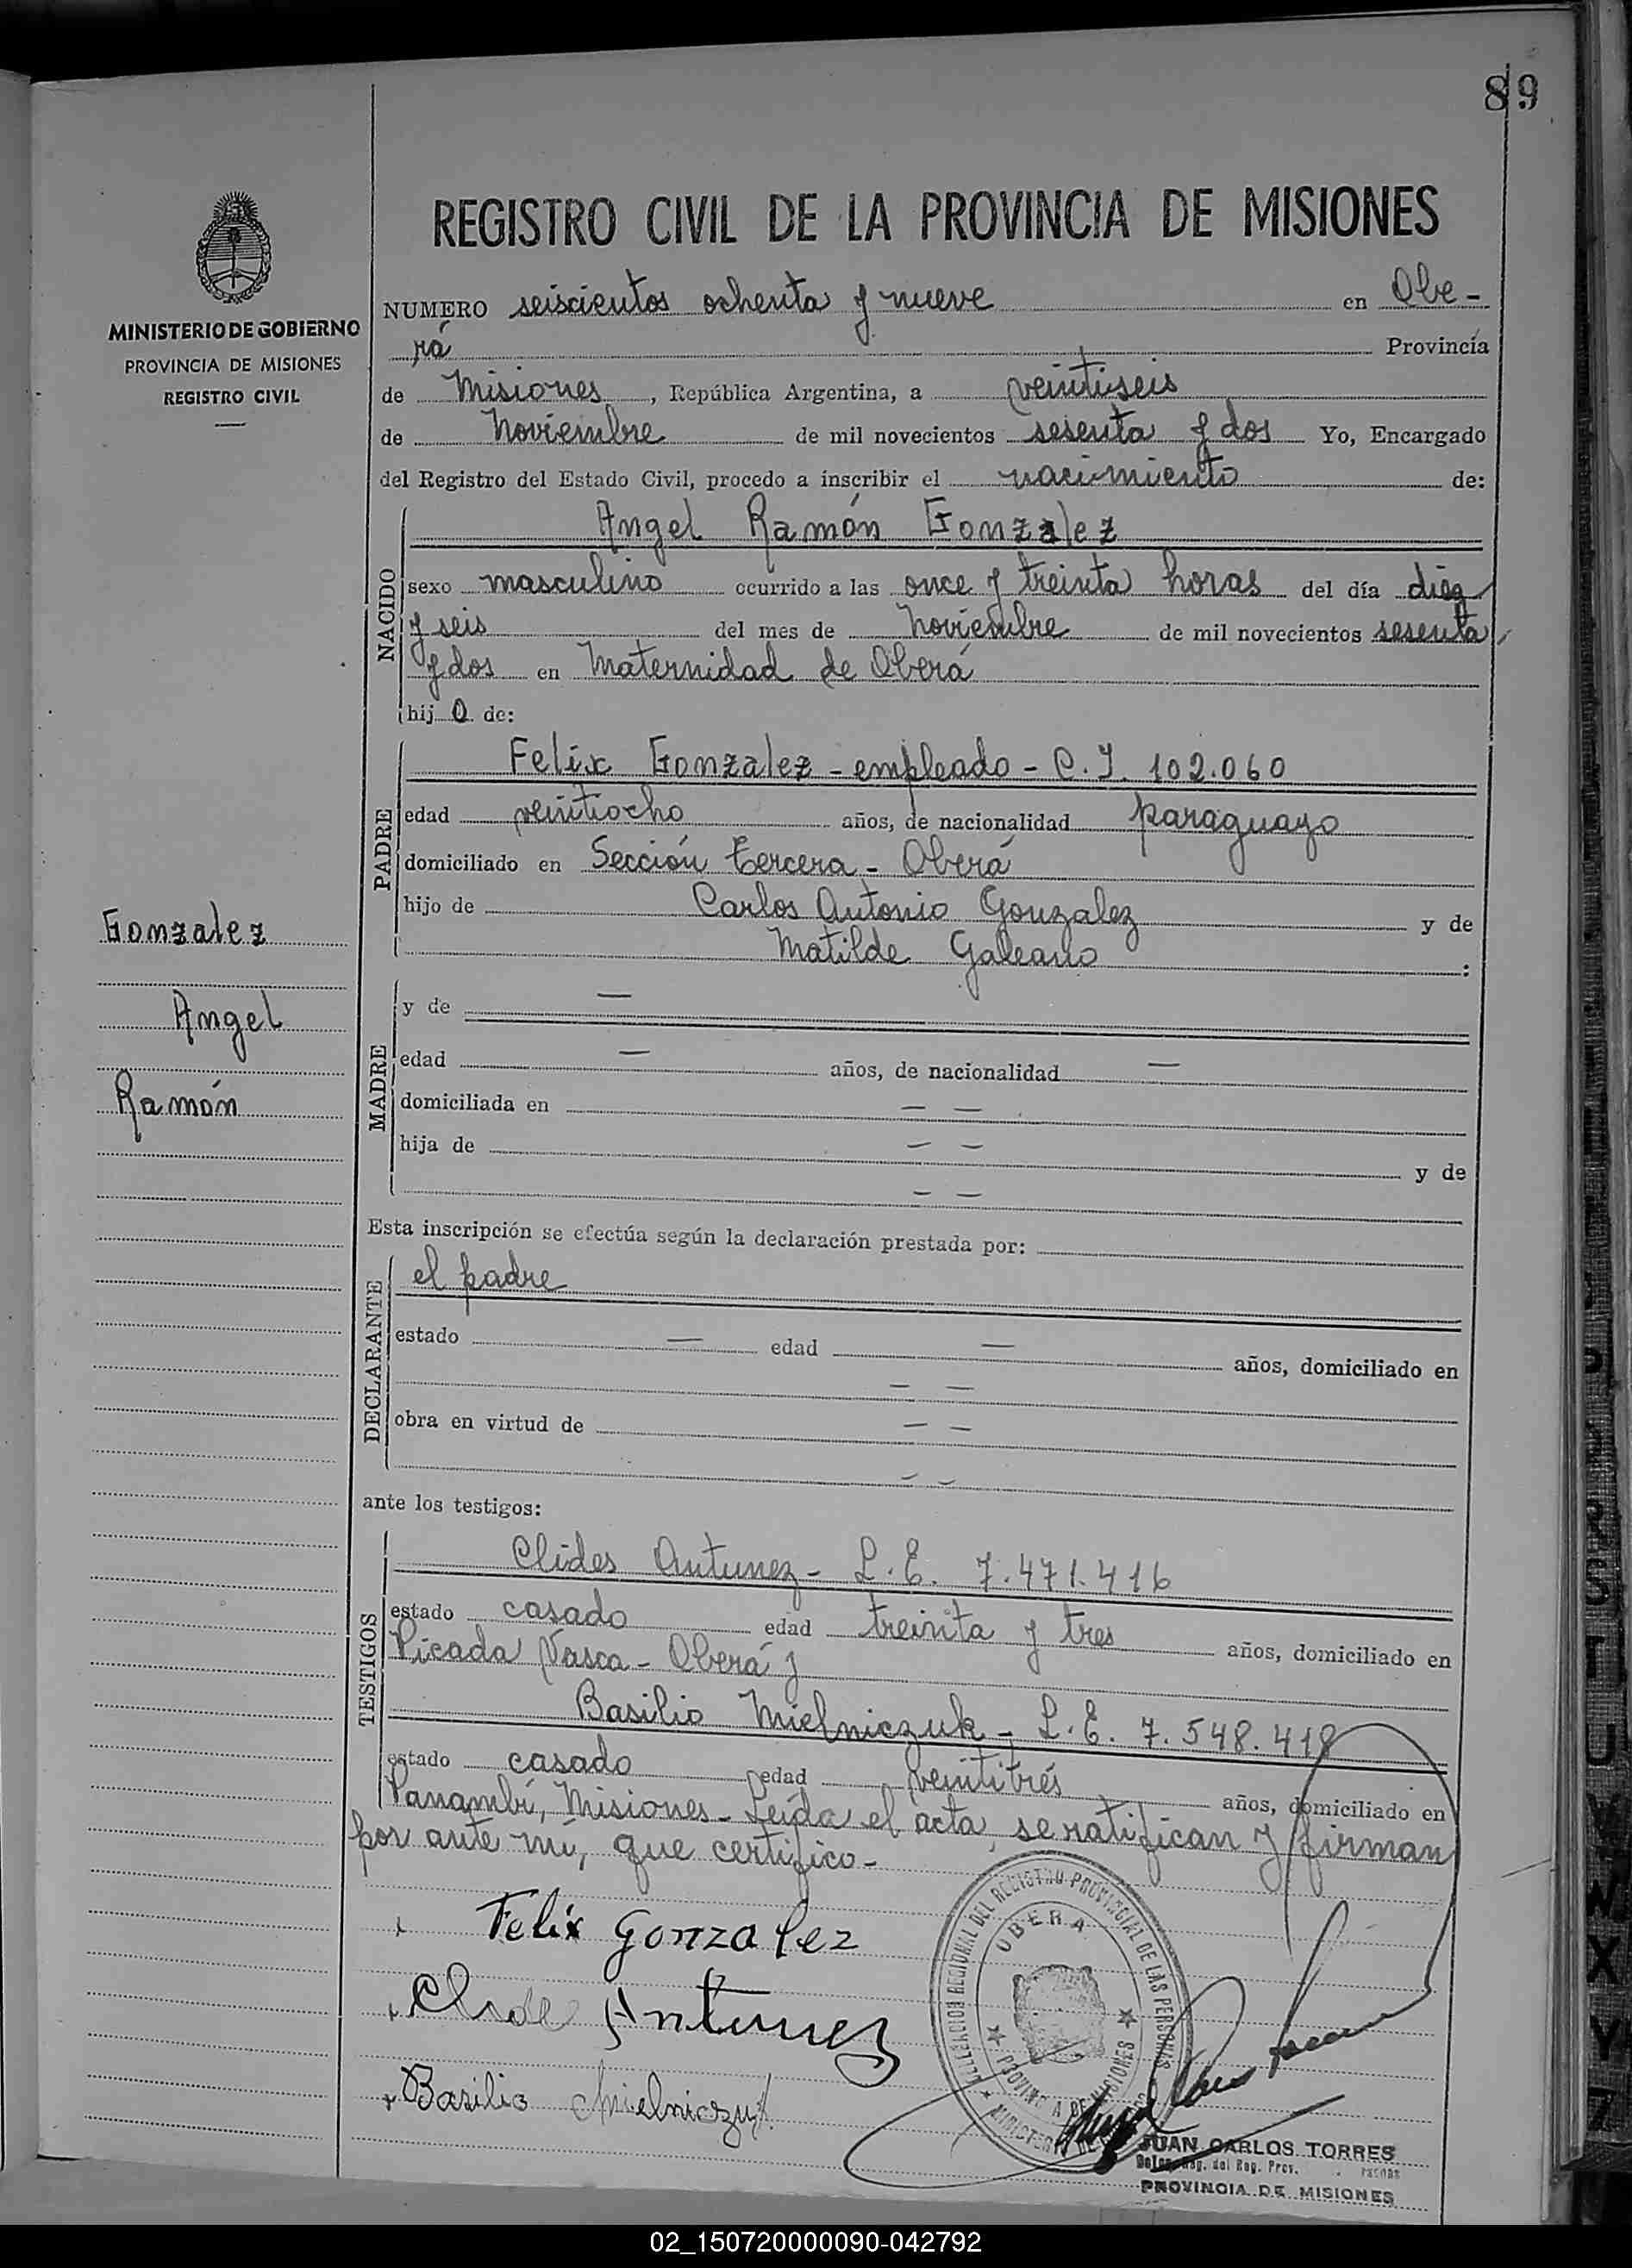 89
REGISTRO CIVIL DE LA PROVINCIA DE MISIONES
MINISTERIO DE GOBIERNO
PROVINCIA DE MISIONES
REGISTRO CIVIL
NUMERO seiscientos ochenta y nueve en Obe-
rá Provincia
de Misiones, República Argentina, a veintiseis
de Noviembre de mil novecientos sesenta y dos Yo, Encargado
del Registro del Estado Civil, procedo a inscribir el nacimiento de:
Angel Ramón Gonzalez
NACIDO
sexo masculino ocurrido a las once y treinta horas del día diez
y seis del mes de Noviembre de mil novecientos sesenta
y dos en Maternidad de Oberá
hijo de:
PADRE
Felix Gonzalez - empleado - C.I. 102.060
edad veintiocho años, de nacionalidad paraguayo
domiciliado en Sección tercera - Oberá
hijo de Carlos Antonio Gonzalez y de
Matilde Galeano :
Gonzalez
Angel
Ramón
MADRE
y de —
edad — años, de nacionalidad —
domiciliada en — —
hija de — — y de
— —
Esta inscripción se efectúa según la declaración prestada por:
DECLARANTE
el padre
estado — edad — años, domiciliado en
— —
obra en virtud de — —
— —
ante los testigos:
TESTIGOS
Clides Antunez - L.E. 7.471.416
estado casado edad treinta y tres años, domiciliado en
Picada Vasca - Oberá y
Basilio Mielniczuk - L.E. 7.548.418
estado casado edad veintitrés años, domiciliado en
Panambí, Misiones - Leída el acta, se ratifican y firman
por ante mí, que certifico -
Felix Gonzalez
Clide Antunez
Basilio Mielniczuk
DELEGACION REGIONAL DEL REGISTRO PROVINCIAL DE LAS PERSONAS
OBERA
PROVINCIA DE MISIONES
JUAN CARLOS TORRES
Reg. del Reg. Prov.
PROVINCIA DE MISIONES
02_150720000090-042792